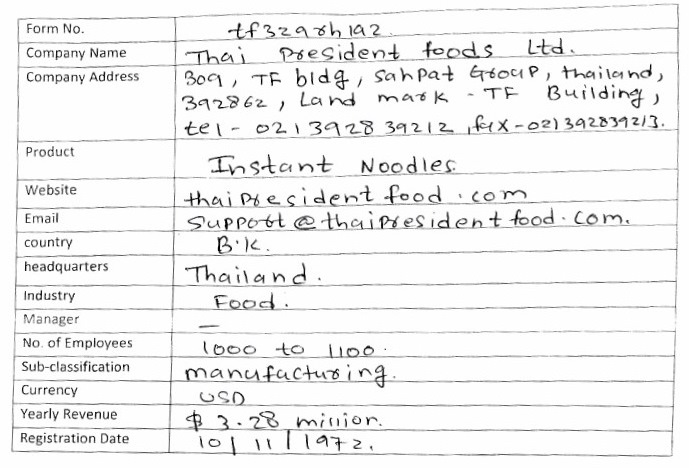 Form No. tf329rh192
Company Name Thai President foods Ltd.
Company Address 309, TF bldg, Sahpat Group, thailand,
392862, Land mark - TF Building,
tel - 02139283 9212, fax - 021392839213.
Product Instant Noodles.
Website thaipresidentfood.com
Email Support@thaipresidentfood.com.
country B.K.
headquarters Thailand.
Industry Food.
Manager —
No. of Employees 1000 to 1100.
Sub-classification manufacturing.
Currency USD
Yearly Revenue $ 3.28 million.
Registration Date 10/11/1972.